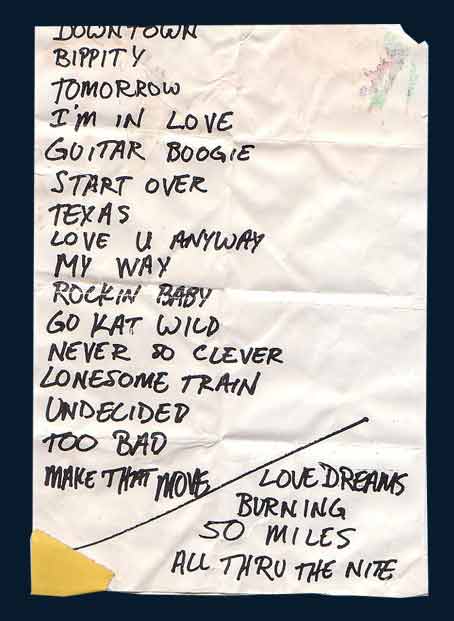 DOWNTOWN
BIPPITY
TOMORROW
I'M IN LOVE
GUITAR BOOGIE
START OVER
TEXAS
LOVE U ANYWAY
MY WAY
ROCKIN BABY
GO KAT WILD
NEVER SO CLEVER
LONESOME TRAIN
UNDECIDED
TOO BAD
MAKE THAT MOVE
LOVE DREAMS
BURNING
50 MILES
ALL THRU THE NITE